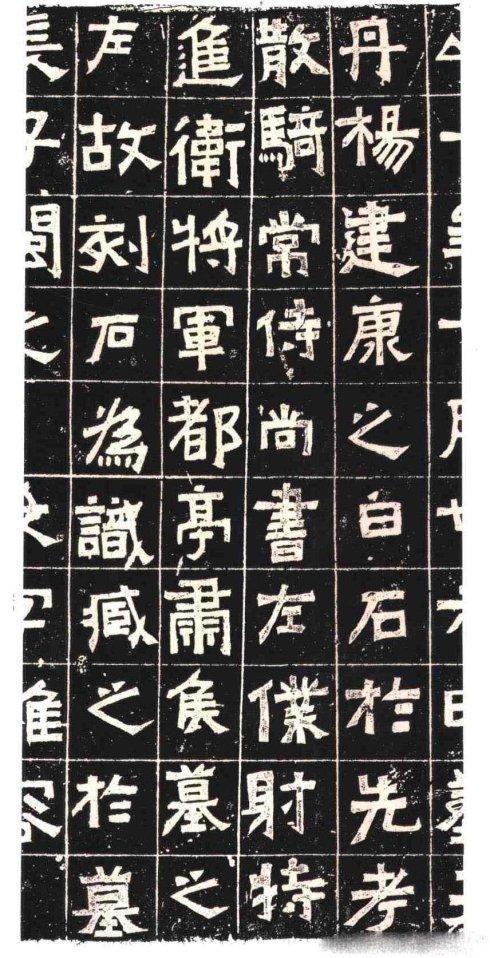 丹楊建康之白石於先考
散騎常侍尚書左僕射特
進衛將軍都亭肅侯墓之
左故刻石為識臧之於墓